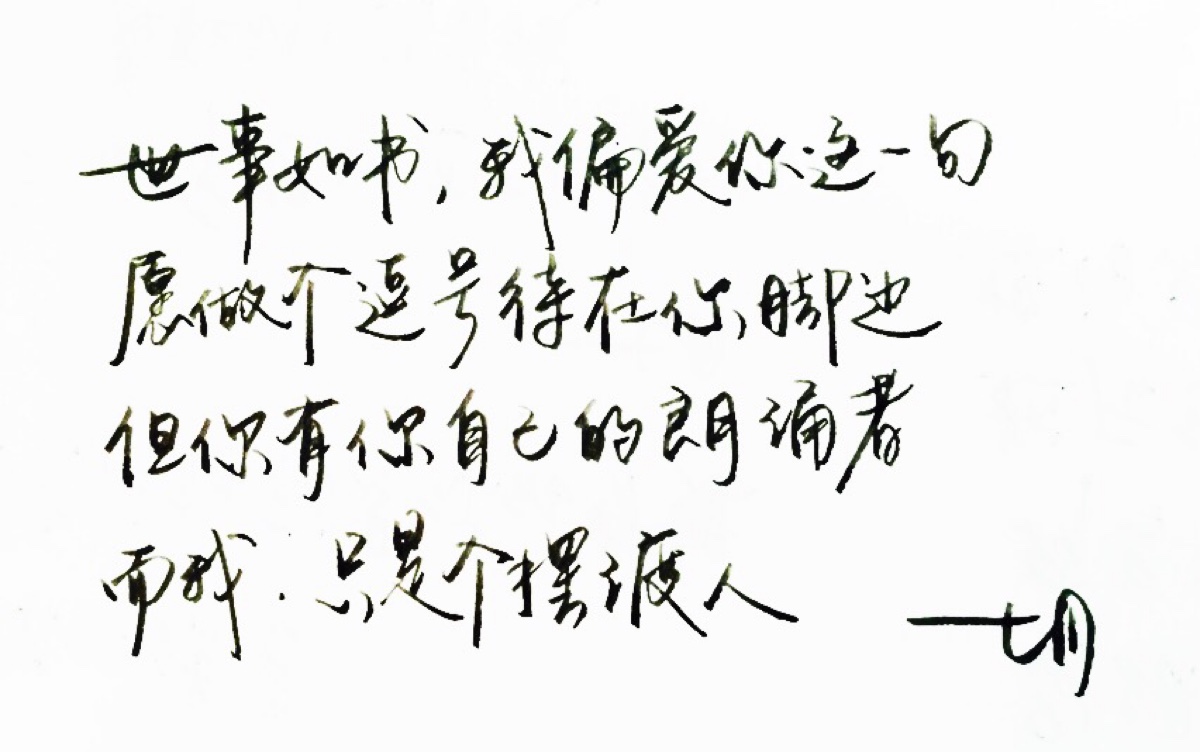 世事如书,我偏爱你这一句
愿做个逗号待在你脚边
但你有你自己的朗诵者
而我.只是个摆渡人
七月